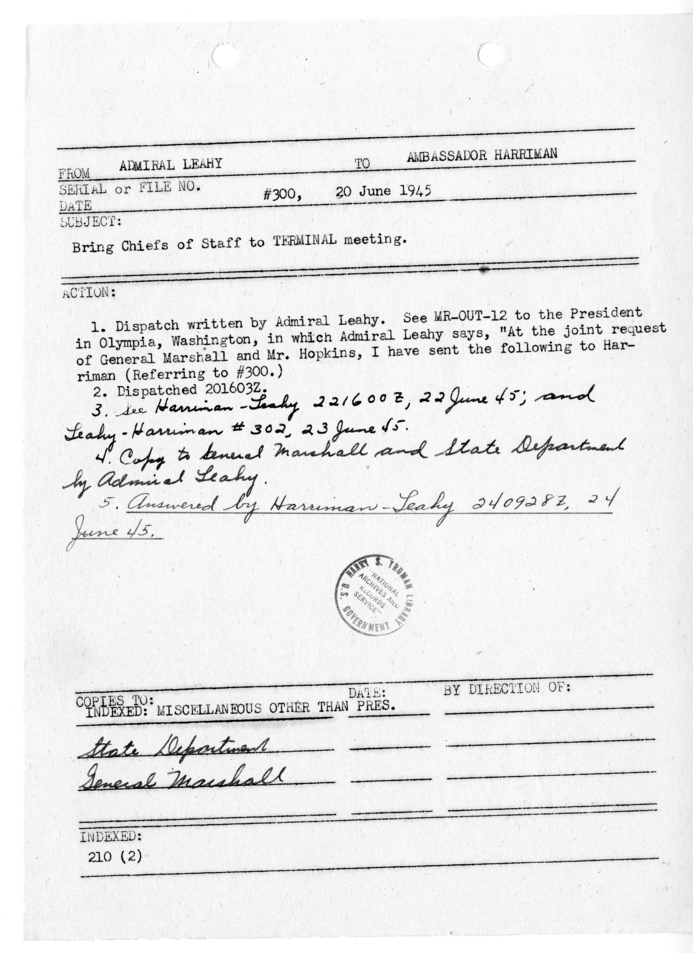 FROM ADMIRAL LEAHY TO AMBASSADOR HARRIMAN
SERIAL or FILE NO.
#300, 20 June 1945
DATE
SUBJECT:
Bring Chiefs of Staff to TERMINAL meeting.
ACTION:
1. Dispatch written by Admiral Leahy. See MR-OUT-12 to the President
in Olympia, Washington, in which Admiral Leahy says, "At the joint request
of General Marshall and Mr. Hopkins, I have sent the following to Har-
riman (Referring to #300.)
2. Dispatched 201603Z.
3. See Harriman-Leahy 221600Z, 22 June 45; and
Leahy-Harriman #302, 23 June 45.
4. Copy to General Marshall and State Department
by Admiral Leahy.
5. Answered by Harriman-Leahy 240928Z, 24
June 45.
U.S. HARRY S. TRUMAN LIBRARY
GOVERNMENT
"NATIONAL
ARCHIVES AND
RECORDS
SERVICE"
COPIES TO: DATE: BY DIRECTION OF:
INDEXED: MISCELLANEOUS OTHER THAN PRES.
State Department
General Marshall
INDEXED:
210 (2)